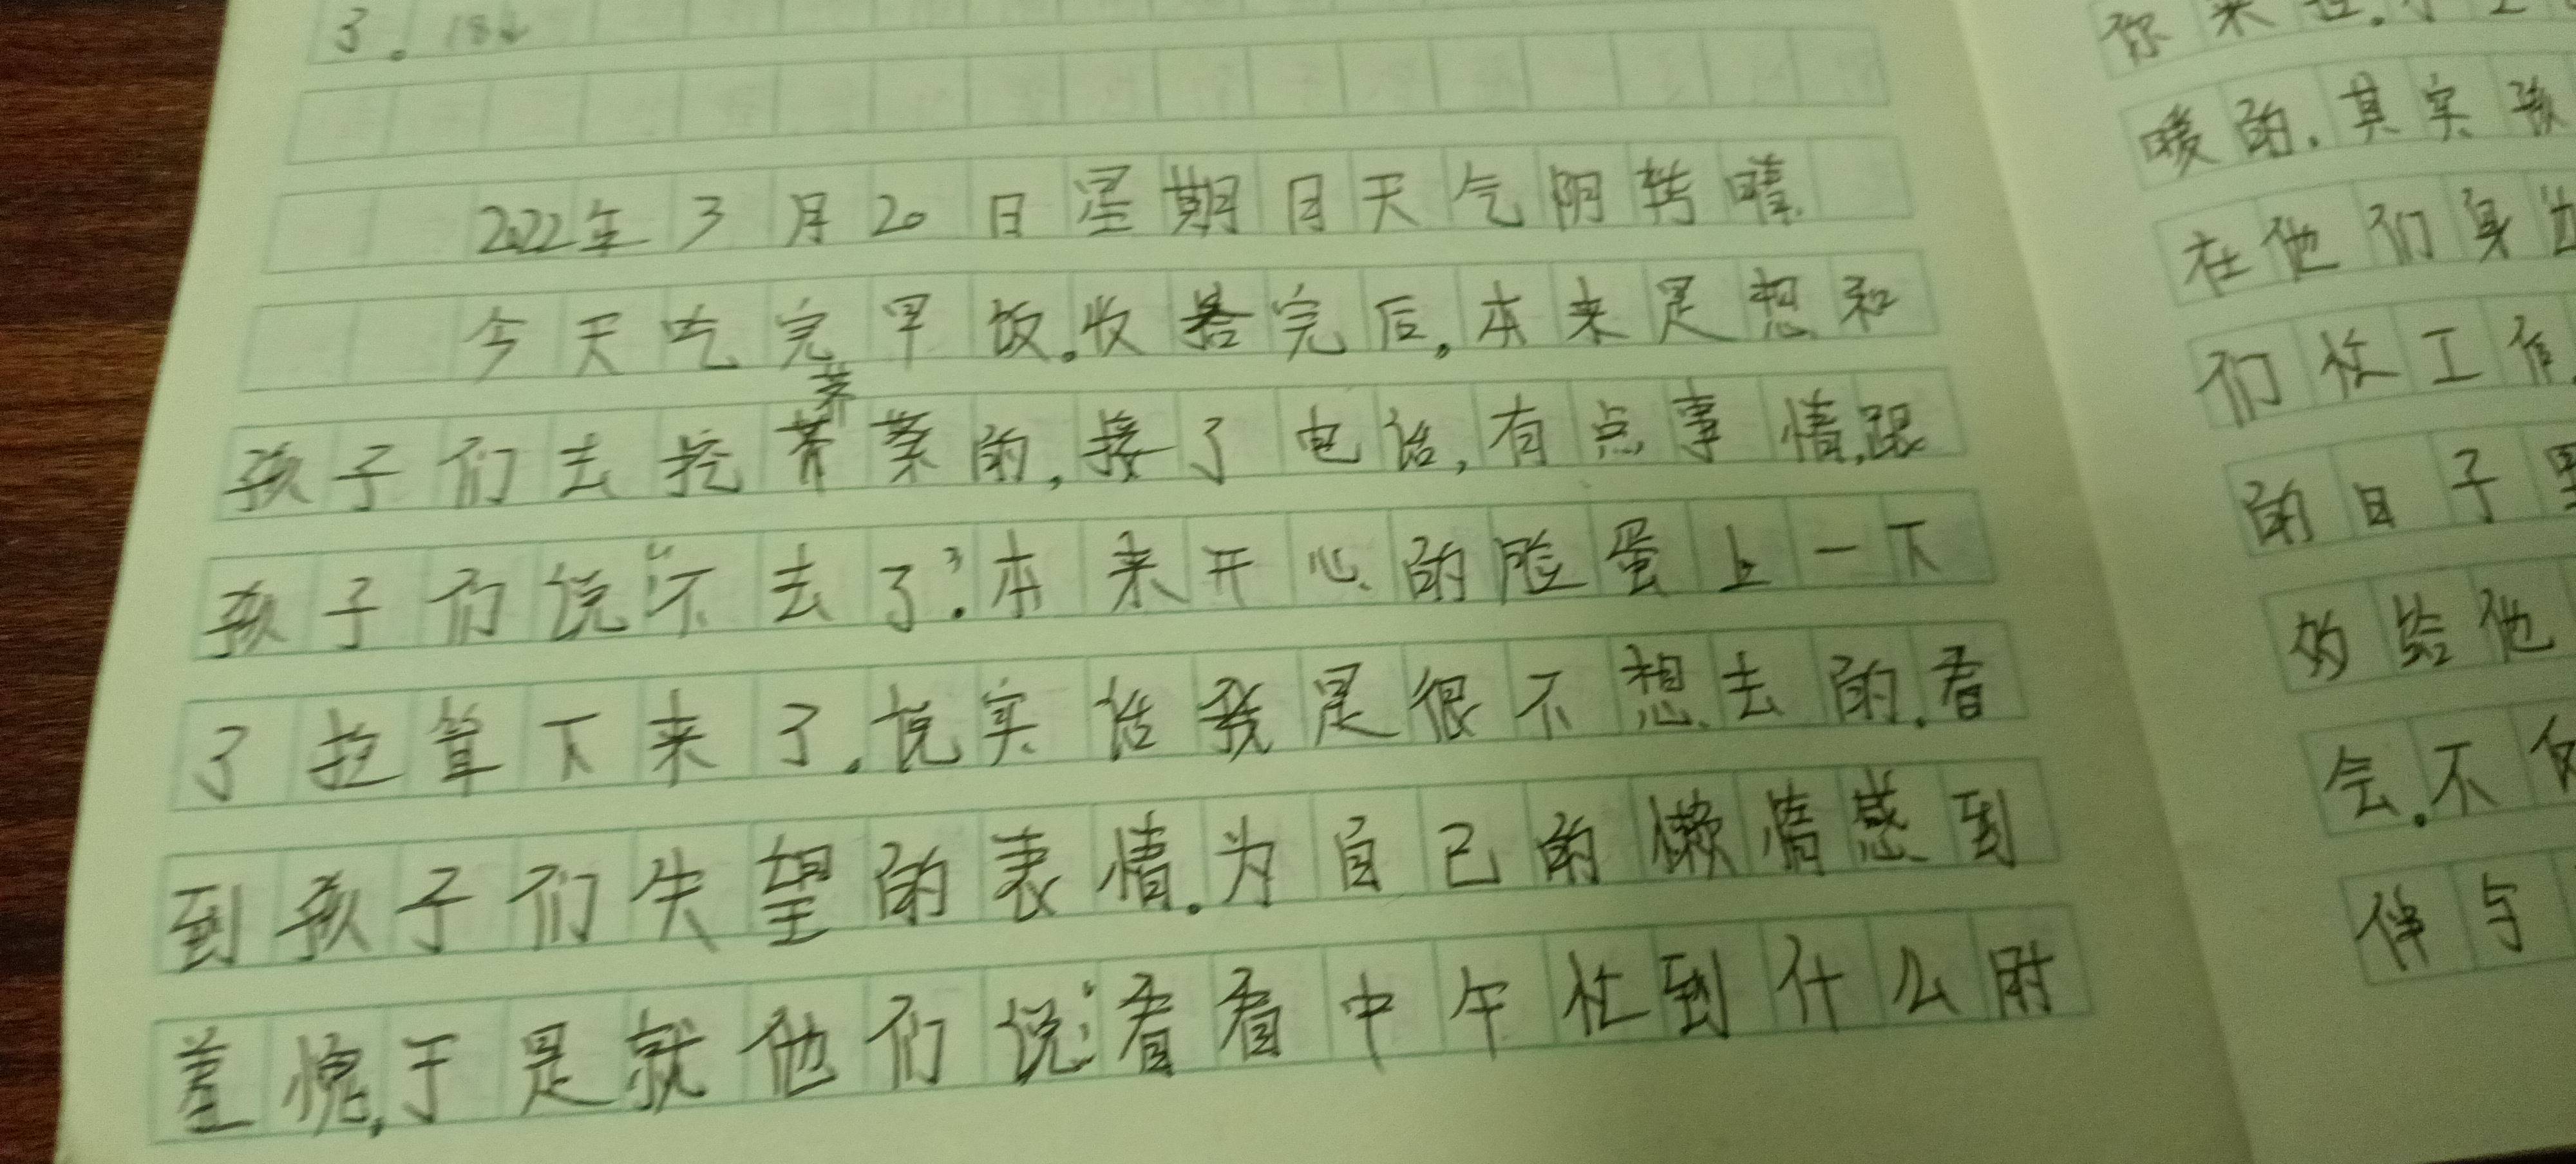 3. 18
2022年3月20日星期日天气阴转晴
今天吃完早饭.收拾完后,本来是想和
荠
孩子们去挖荠菜的,接了电话,有点事情,跟
孩子们说"不去了".本来开心的脸蛋上一下
了拉耷下来了.说实话我是很不想去的.看
到孩子们失望的表情.为自己的懒惰感到
羞愧,于是就他们说:"看看中午忙到什么时
你来
暖的.其实孩
在他们身边
们忙工作
的日子里
的给他
会.不
伴与